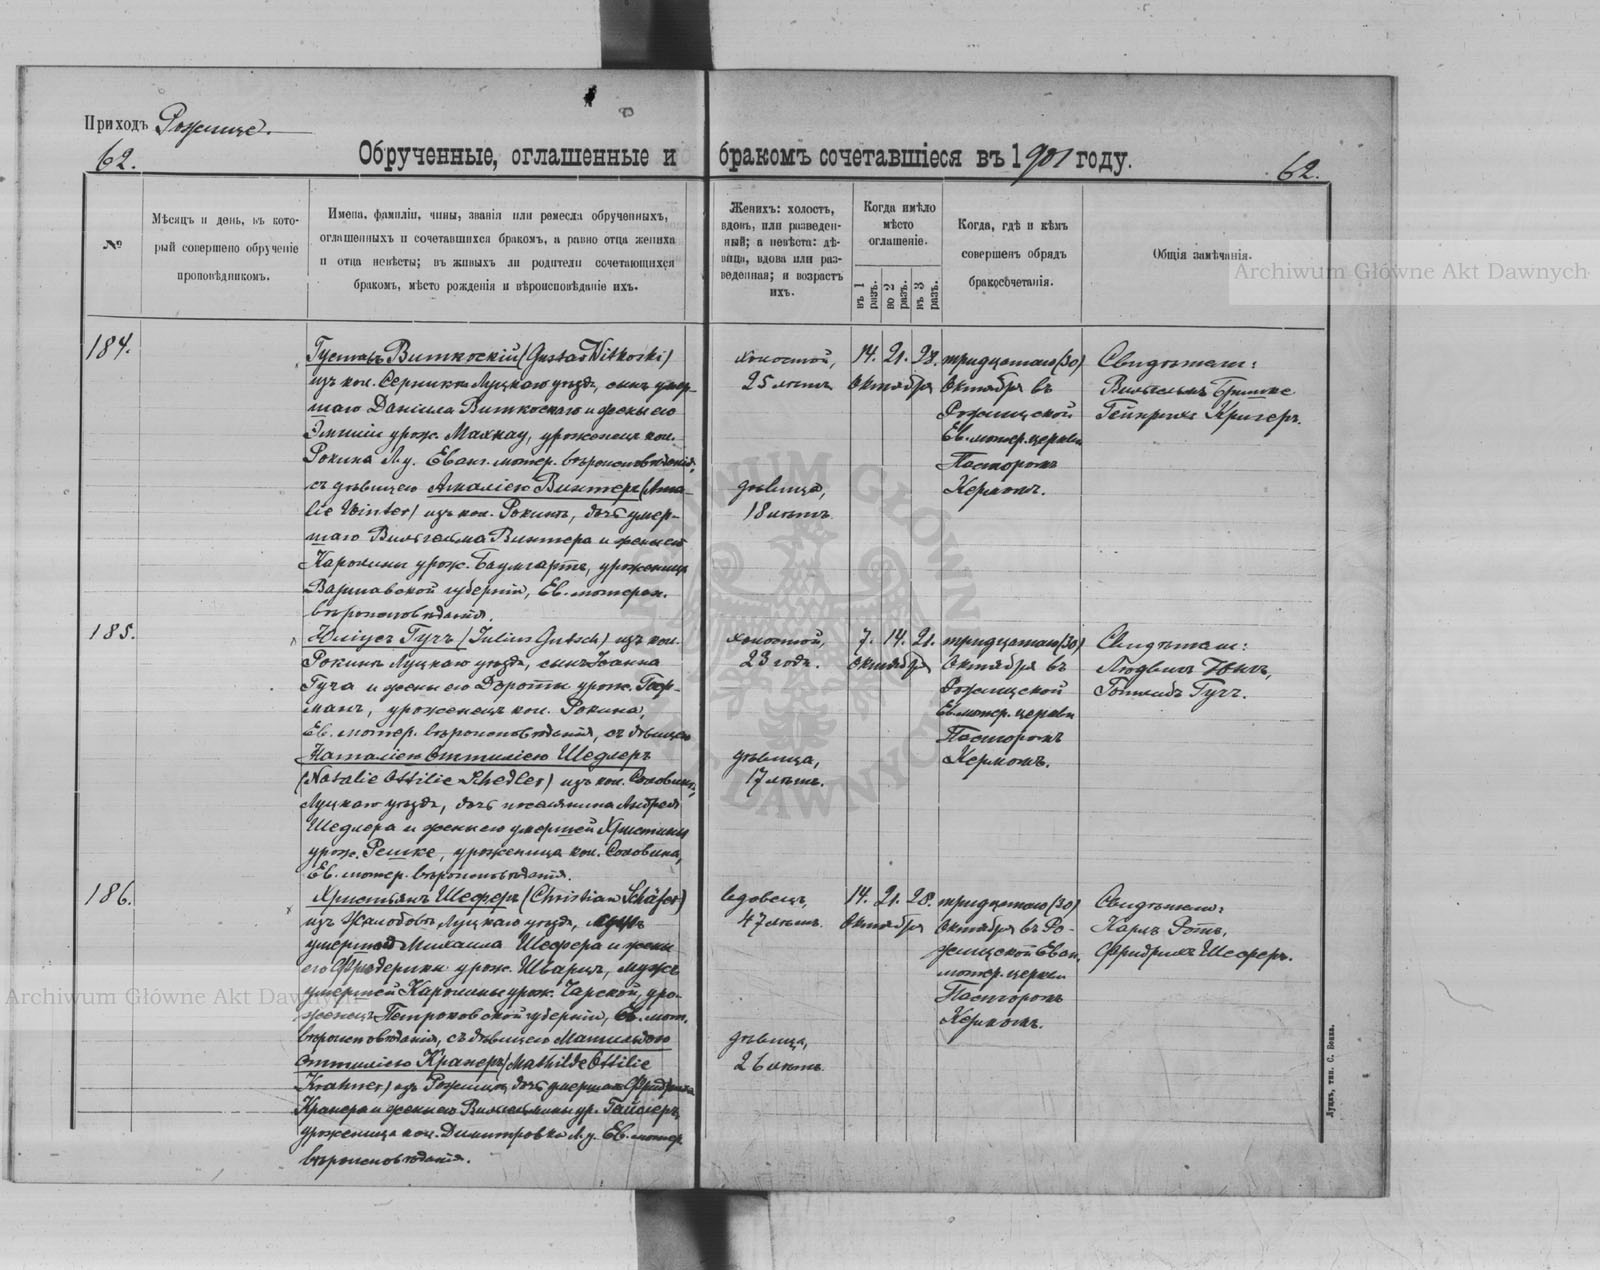 Приходъ Рожище.
62.
Обрученные, оглашенные и бракомъ сочетавшіеся въ 1901 году.
62.
№
Мѣсяцъ и день, въ кото-
рый совершено обрученіе
проповѣдникомъ.
Имена, фамиліи, чины, званія или ремесла обрученныхъ,
оглашенныхъ и сочетавшихся бракомъ, а равно отца жениха
и отца невѣсты; въ живыхъ ли родители сочетающихся
бракомъ, мѣсто рожденія и вѣроисповѣданіе ихъ.
Женихъ: холостъ,
вдовъ, или разведен-
ный; а невѣста: дѣ-
вица, вдова или раз-
веденная; и возрастъ
ихъ.
Когда имѣло
мѣсто
оглашеніе.
въ 1 разъ.
во 2 разъ.
въ 3 разъ.
Когда, гдѣ и кѣмъ
совершенъ обрядъ
бракосочетанія.
Общія замѣчанія.
Archiwum Główne Akt Dawnych
184.
Густавъ Виткоскій (Gustav Witkoski)
изъ кол. Серники Луцкаго уѣзда, сынъ умер-
шаго Даніила Виткоскаго и жены его
Эмиліи урож. Махнау, уроженецъ кол.
Рокина Л. у. Еванг. лютер. вѣроисповѣданія,
съ дѣвицею Амаліею Винтеръ (Ama-
lie Winter) изъ кол. Рокинъ, дочь умер-
шаго Вильгельма Винтера и жены его
Каролины урож. Баумгартъ, уроженица
Варшавской губерніи, Ев. лютеран.
вѣроисповѣданія.
холостой,
25 лѣтъ
дѣвица,
18 лѣтъ
14. 21. 28.
Октября
тридцатаго (30)
Октября въ
Рожищской
Ев. лютер. церкви
Пасторомъ
Керномъ.
Свидѣтели:
Вильгельмъ
Гейнрихъ Кригеръ.
185.
Юліусъ Гучъ (Julius Gutsch) изъ кол.
Рокинъ Луцкаго уѣзда, сынъ Іоанна
Гуча и жены его Доротты урож. Гоф-
манъ, уроженецъ кол. Рокина,
Ев. лютер. вѣроисповѣданія, съ дѣвицею
Наталіею Оттиліею Шедлеръ
(Natalie Ottilie Schedler) изъ кол.
Луцкаго уѣзда, дочь поселянина Андрея
Шедлера и жены его умершей Христины
урож. Решке, уроженица кол.
Ев. лютер. вѣроисповѣданія.
холостой,
23 годъ.
дѣвица,
17 лѣтъ.
7. 14. 21.
Октября
тридцатаго (30)
Октября въ
Рожищской
Ев. лютер. церкви
Пасторомъ
Керномъ.
Свидѣтели:
Людвигъ
Готлибъ Гучъ.
186.
Христьянъ Шеферъ (Christian Schäfer)
изъ Жалобовъ Луцкаго уѣзда, сынъ
умершаго Михаила Шефера и жены
его Фридерики урож. Шварцъ, мужъ
умершей Каролины урож. Чарской, уро-
женецъ Петроковской губерніи, Ев. лют.
вѣроисповѣданія, съ дѣвицею Матильдою
Оттиліею Кранеръ (Mathilde Ottilie
Krahner) изъ Рожищъ, дочь умершаго Фридриха
Кранера и жены его Вильгельмины ур. Гайслеръ,
уроженица кол. Димитровка Л. у. Ев. лютер.
вѣроисповѣданія.
вдовецъ,
47 лѣтъ.
дѣвица,
26 лѣтъ.
14. 21. 28.
Октября
тридцатаго (30)
Октября въ Ро-
жищской Еван.
лютер. церкви
Пасторомъ
Керномъ.
Свидѣтели:
Карлъ Ротъ,
Фридрихъ Шеферъ.
Archiwum Główne Akt Dawnych
Луцкъ, тип. С. Бокна.